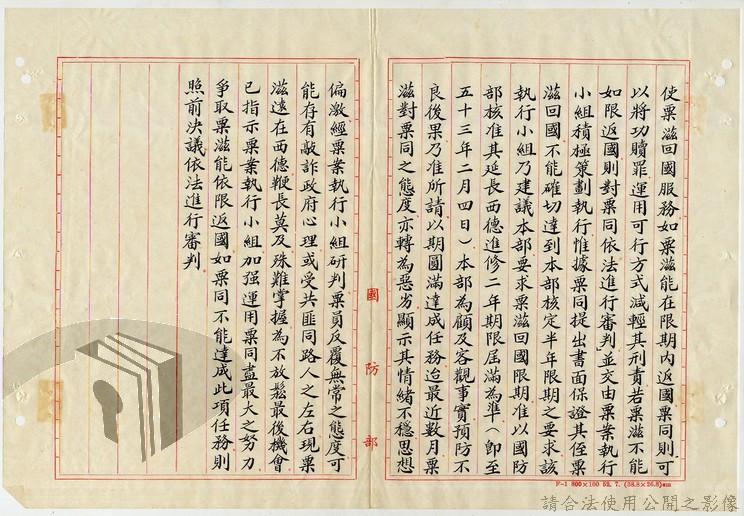 使粟滋回國服務如粟滋能在限期內返國粟同則可
以將功贖罪運用可行方式減輕其刑責若粟滋不能
如限返國則對粟同依法進行審判並交由粟案執行
小組積極策劃執行惟據粟同提出書面保證其侄粟
滋回國不能確切達到本部核定半年限期之要求該
執行小組乃建議本部要求粟滋回國限期准以國防
部核准其延長西德進修二年期限屆滿為準（即至
五十三年二月四日）本部為顧及客觀事實預防不
良後果乃准所請以期圓滿達成任務迨最近數月粟
滋對粟同之態度亦轉為惡劣顯示其情緒不穩思想
國防部
偏激經粟案執行小組研判粟員反覆無常之態度可
能存有敲詐政府心理或受共匪同路人之左右現粟
滋遠在西德鞭長莫及殊難掌握為不放鬆最後機會
已指示粟案執行小組加强運用粟同盡最大之努力
爭取粟滋能依限返國如粟同不能達成此項任務則
照前決議依法進行審判
F-1 800×100 52. 7. (38.8×26.8)cm
請合法使用公開之影像